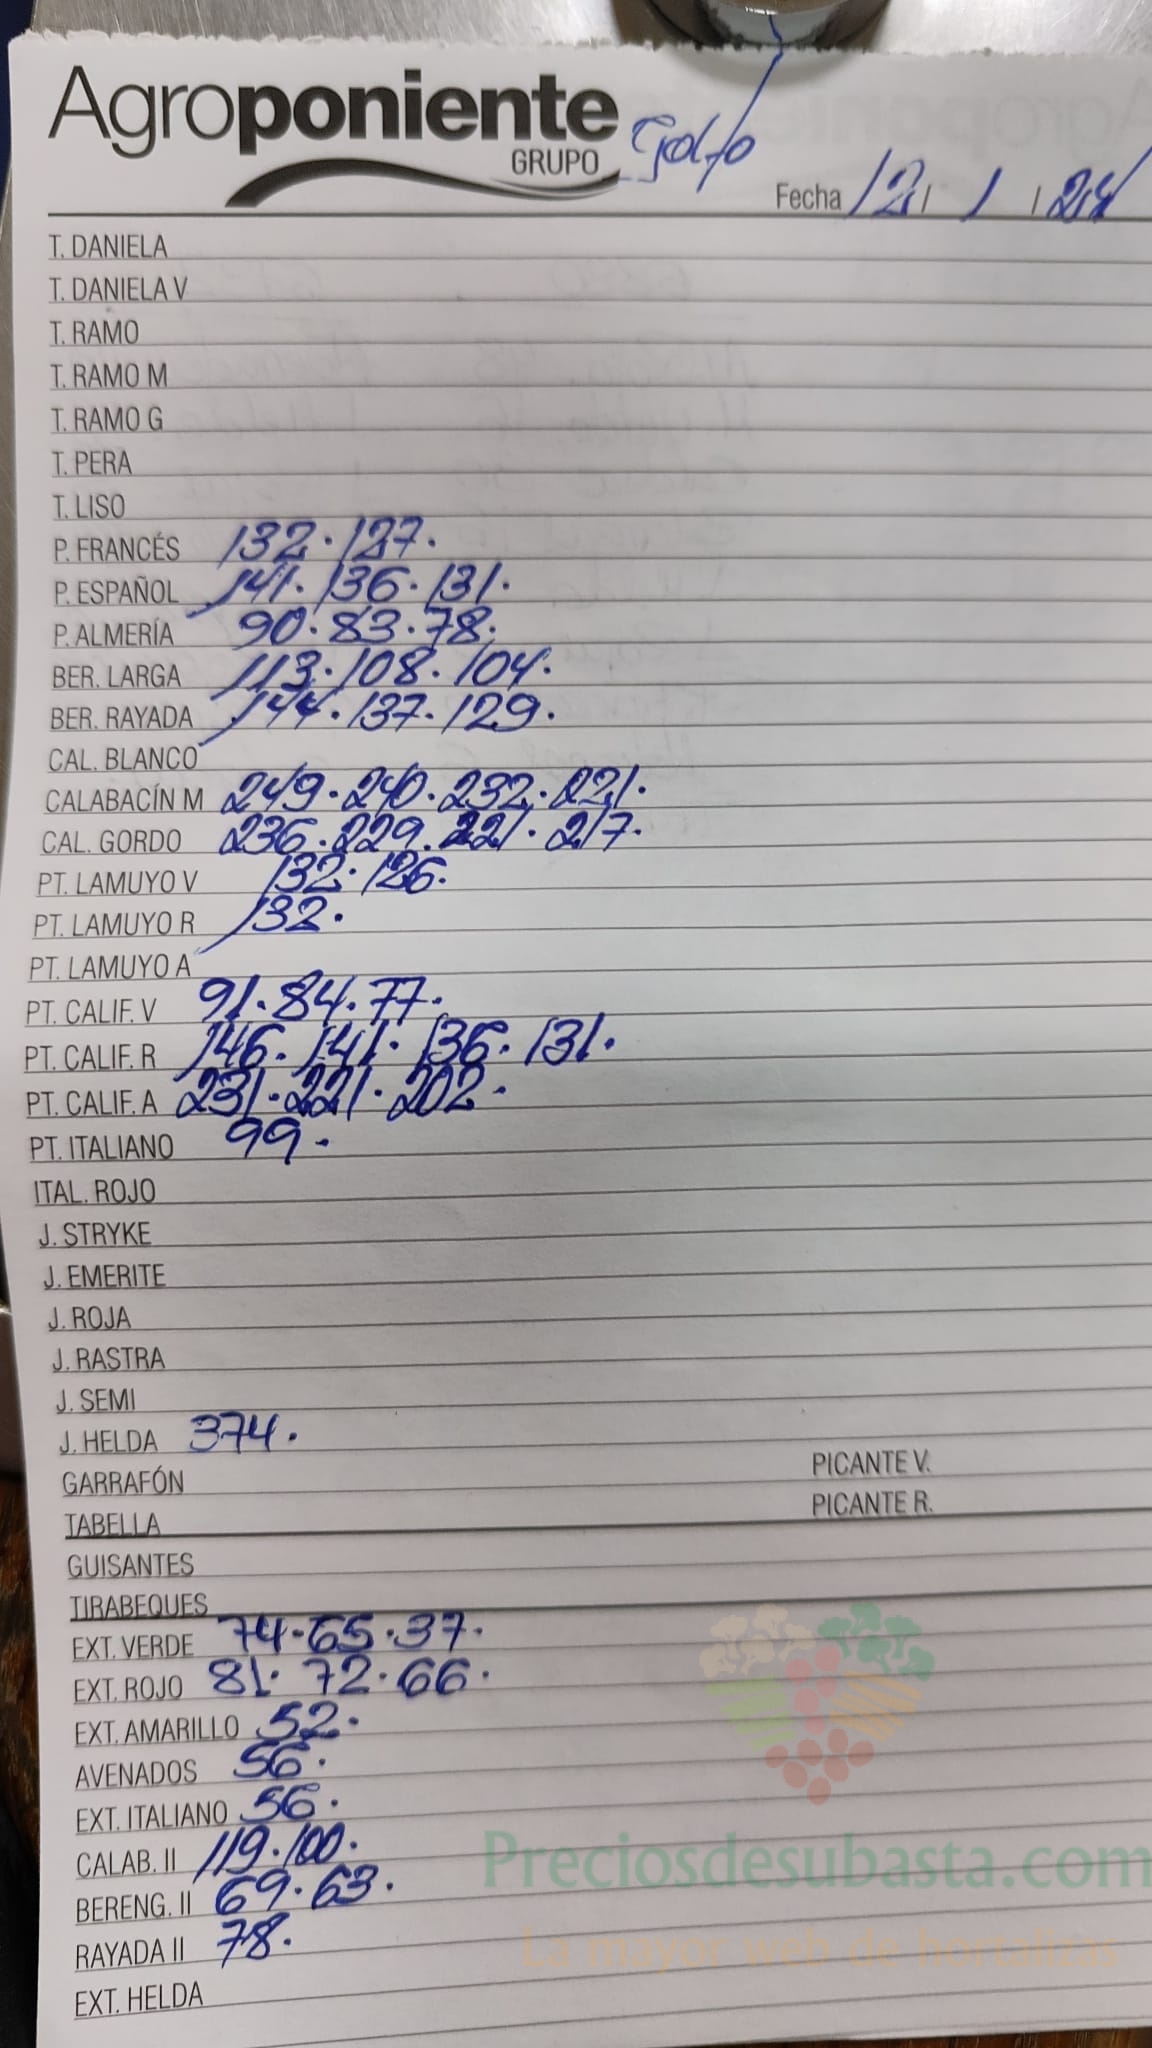 Agroponiente
GRUPO
Golfo
Fecha 12 / 1 / 24
T. DANIELA
T. DANIELA V
T. RAMO
T. RAMO M
T. RAMO G
T. PERA
T. LISO
P. FRANCÉS 132. 127.
P. ESPAÑOL 141. 136. 131.
P. ALMERÍA 90. 83. 78.
BER. LARGA 113. 108. 104.
BER. RAYADA 144. 137. 129.
CAL. BLANCO
CALABACÍN M 249. 240. 232. 221.
CAL. GORDO 236. 229. 221. 217.
PT. LAMUYO V 132. 126.
PT. LAMUYO R 132.
PT. LAMUYO A
PT. CALIF. V 91. 84. 77.
PT. CALIF. R 146. 141. 136. 131.
PT. CALIF. A 231. 221. 202.
PT. ITALIANO 99.
ITAL. ROJO
J. STRYKE
J. EMERITE
J. ROJA
J. RASTRA
J. SEMI
J. HELDA 374.
GARRAFÓN PICANTE V.
TABELLA PICANTE R.
GUISANTES
TIRABEQUES
EXT. VERDE 74. 65. 37.
EXT. ROJO 81. 72. 66.
EXT. AMARILLO 52.
AVENADOS 56.
EXT. ITALIANO 56.
CALAB. II 119. 100.
BERENG. II 69. 63.
RAYADA II 78.
EXT. HELDA
Preciosdesubasta.com
La mayor web de hortalizas